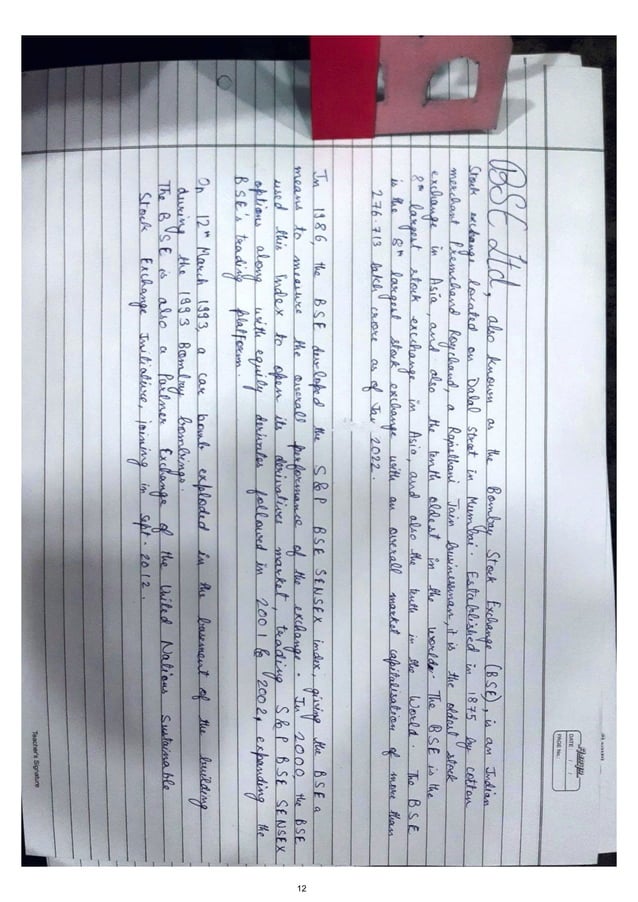 DATE / /
PAGE No.
BSE Ltd, also known as the Bombay Stock Exchange (BSE), is an Indian
Stock exchange located on Dalal Street in Mumbai. Established in 1875 by cotton
merchant Premchand Roychand, a Rajasthani Jain businessman, it is the oldest stock
exchange in Asia, and also the tenth oldest in the world. The BSE is the
8th largest stock exchange in Asia, and also the tenth in the World. The BSE
is the 8th largest stock exchange with an overall market capitalisation of more than
276.713 lakh crore as of Jan 2022.
In 1986, the BSE developed the S&P BSE SENSEX index, giving the BSE a
means to measure the overall performance of the exchange. In 2000, the BSE
used this index to open its derivatives market, trading S&P BSE SENSEX
options along with equity derivates followed in 2001 & 2002, expanding the
BSE's trading platform.
On 12th March 1993, a car bomb exploded in the basement of the building
during the 1993 Bombay bombings.
The BSE is also a Partner Exchange of the United Nations Sustainable
Stock Exchange Initiative, joining in Sept. 2012.
Teacher's Signature
12